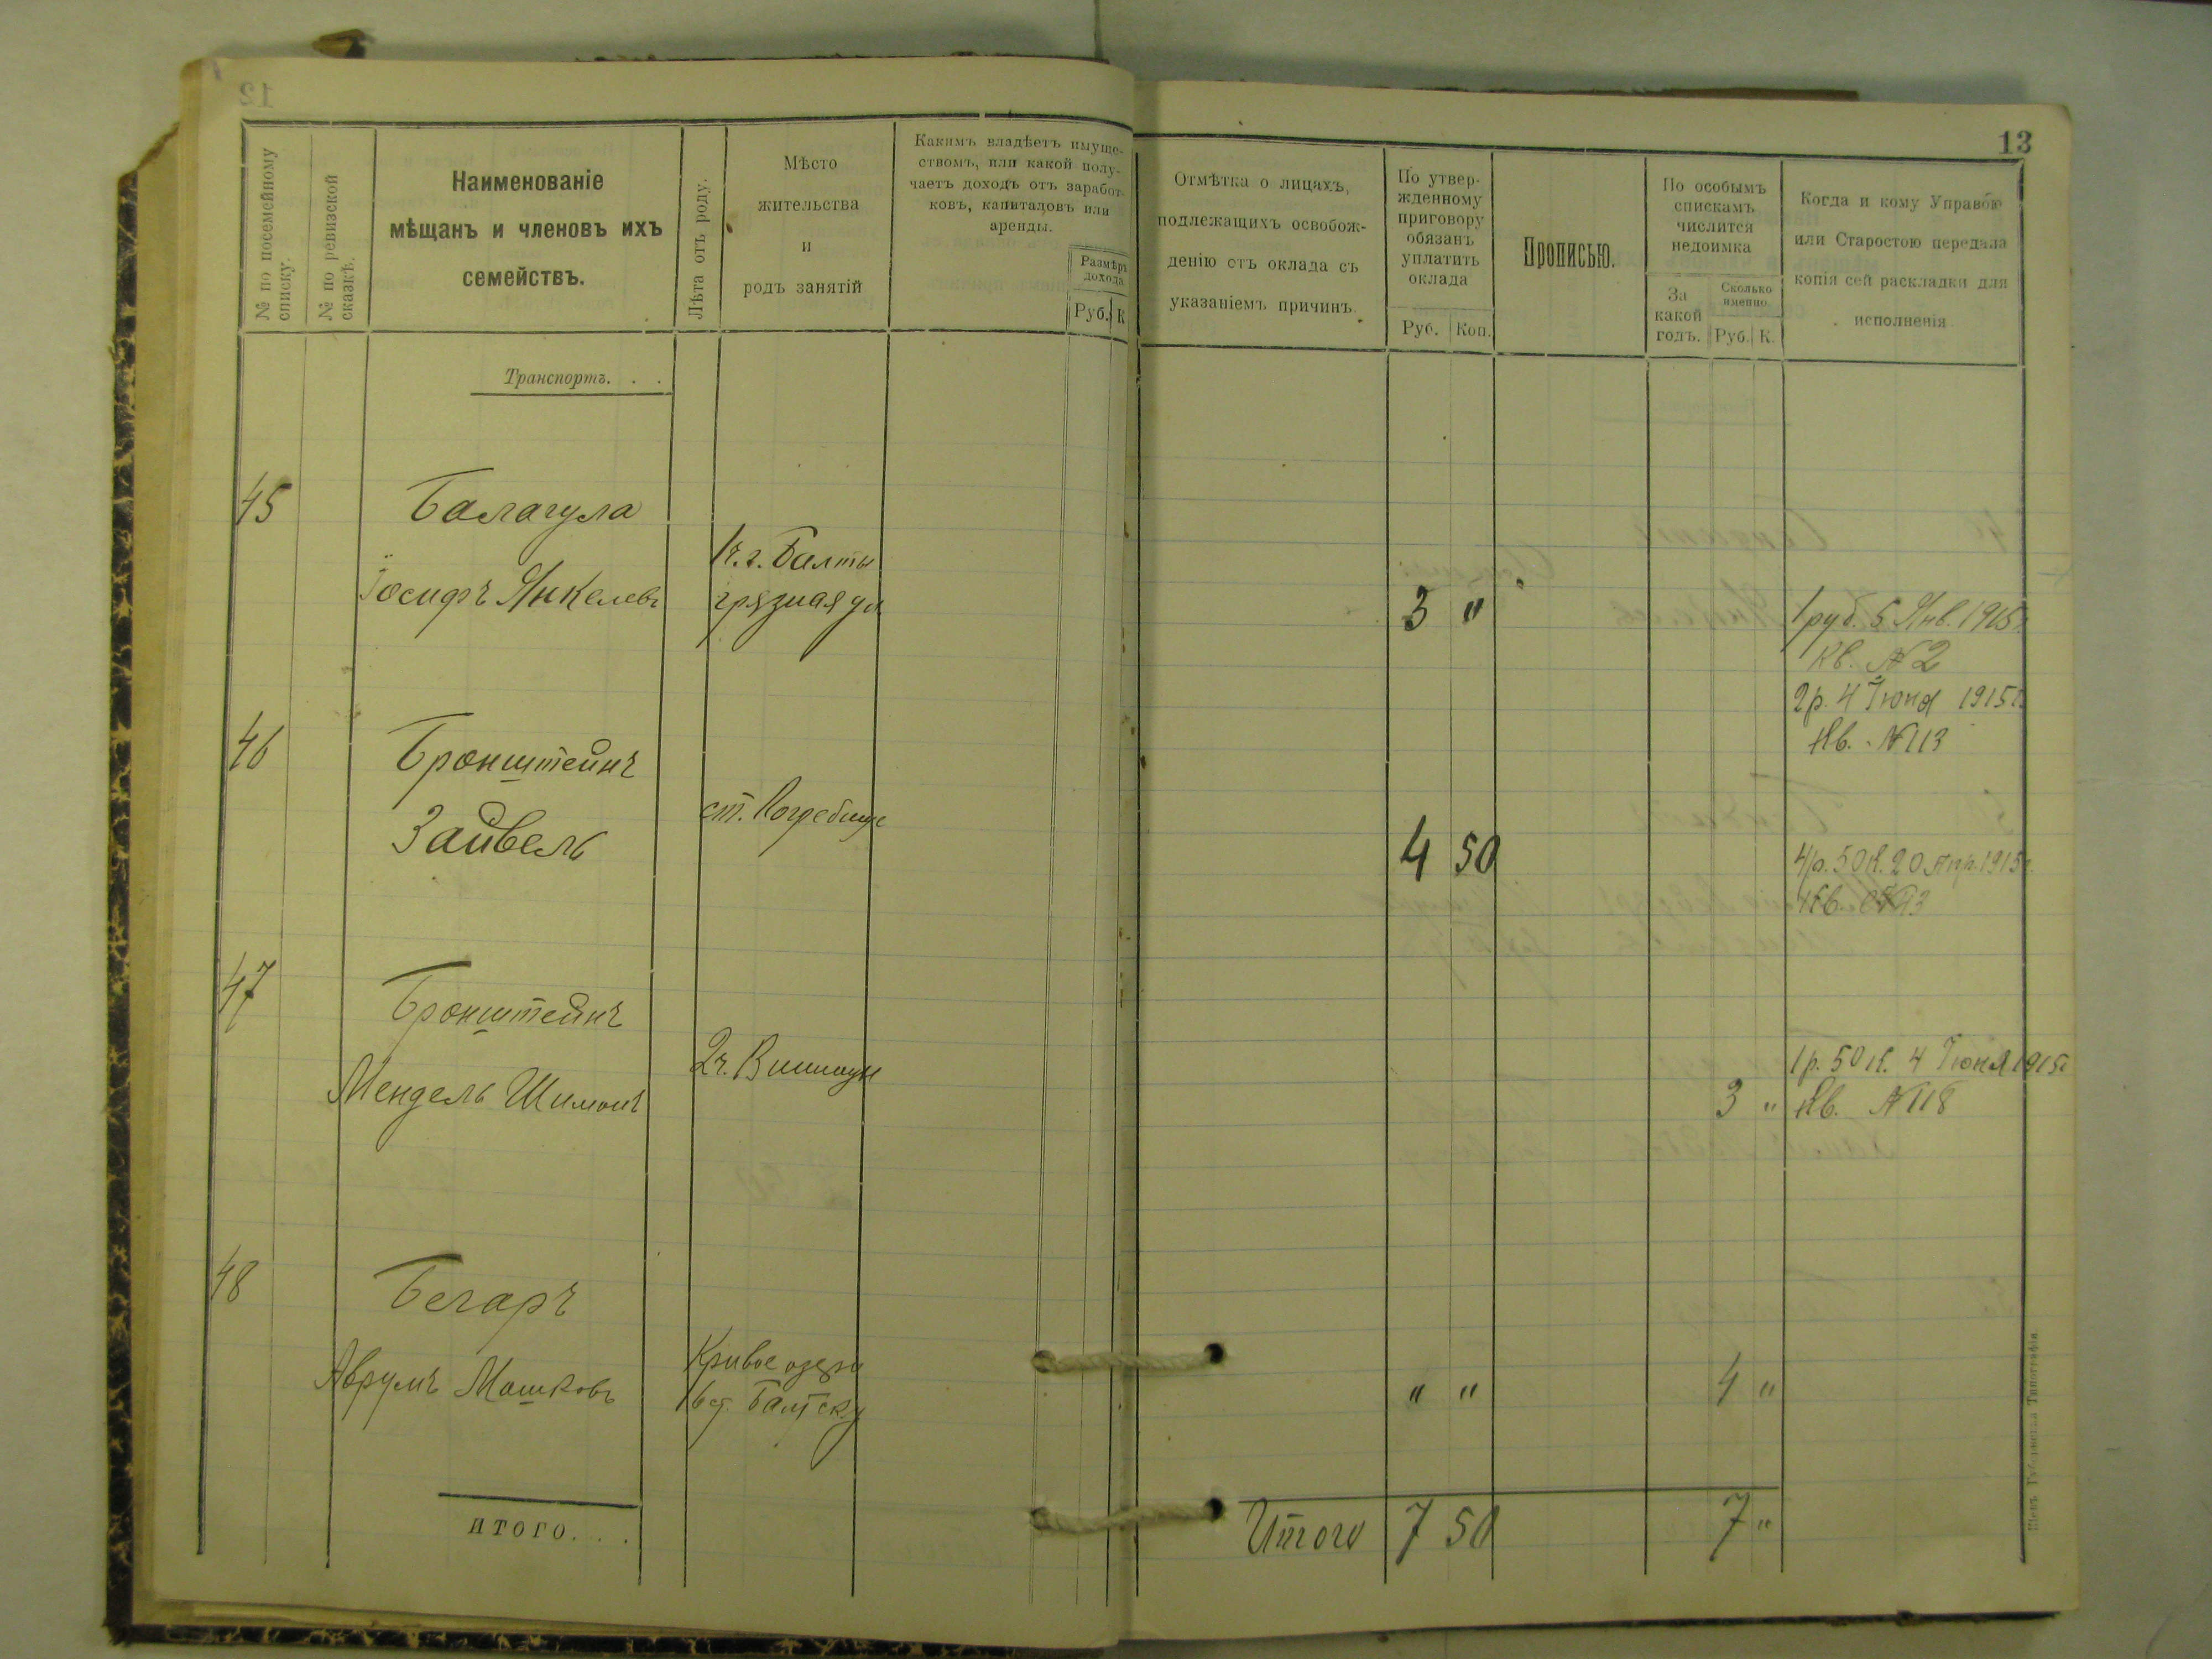 13
№ по посемейному списку.
№ по ревизской сказкѣ.
Наименованіе
мѣщанъ и членовъ ихъ
семействъ.
Лѣта отъ роду.
Мѣсто
жительства
и
родъ занятій
Какимъ владѣетъ имуще-
ствомъ, или какой полу-
чаетъ доходъ отъ заработ-
ковъ, капиталовъ или
аренды.
Размѣръ
дохода
Руб. К
Отмѣтка о лицахъ,
подлежащихъ освобож-
денію отъ оклада съ
указаніемъ причинъ.
По утвер-
жденному
приговору
обязанъ
уплатить
оклада
Руб. Коп.
Прописью.
По особымъ
спискамъ
числится
недоимка
За
какой
годъ.
Сколько
именно.
Руб. К.
Когда и кому Управою
или Старостою передана
копія сей раскладки для
исполненія
Транспортъ. . .
45 Балагула
Іосифъ Янкелевъ
1ч. г. Балты
грязная ул
3 "
1 руб. 5 Янв. 1915г.
Кв. №2
2р. 4 Іюня 1915г.
Кв. №113
46 Бронштейнъ
Зайвель
ст. Погребище
4 50
4р. 50к. 20 Апр. 1915г.
Кв. №93
47 Бронштейнъ
Мендель Шимонъ
2ч.
3 "
1р. 50к. 4 Іюня 1915г
Кв. №118
48 Бегаръ
Аврумъ Мошковъ
Кривое озеро
Балтск. у
" "
4 "
ИТОГО. . .
Итого 7 50
7 "
Кіевъ Губернская Типографія.